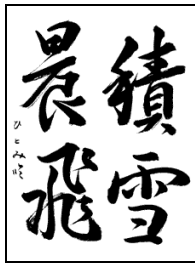 積雪
晨飛
ひとみ吟